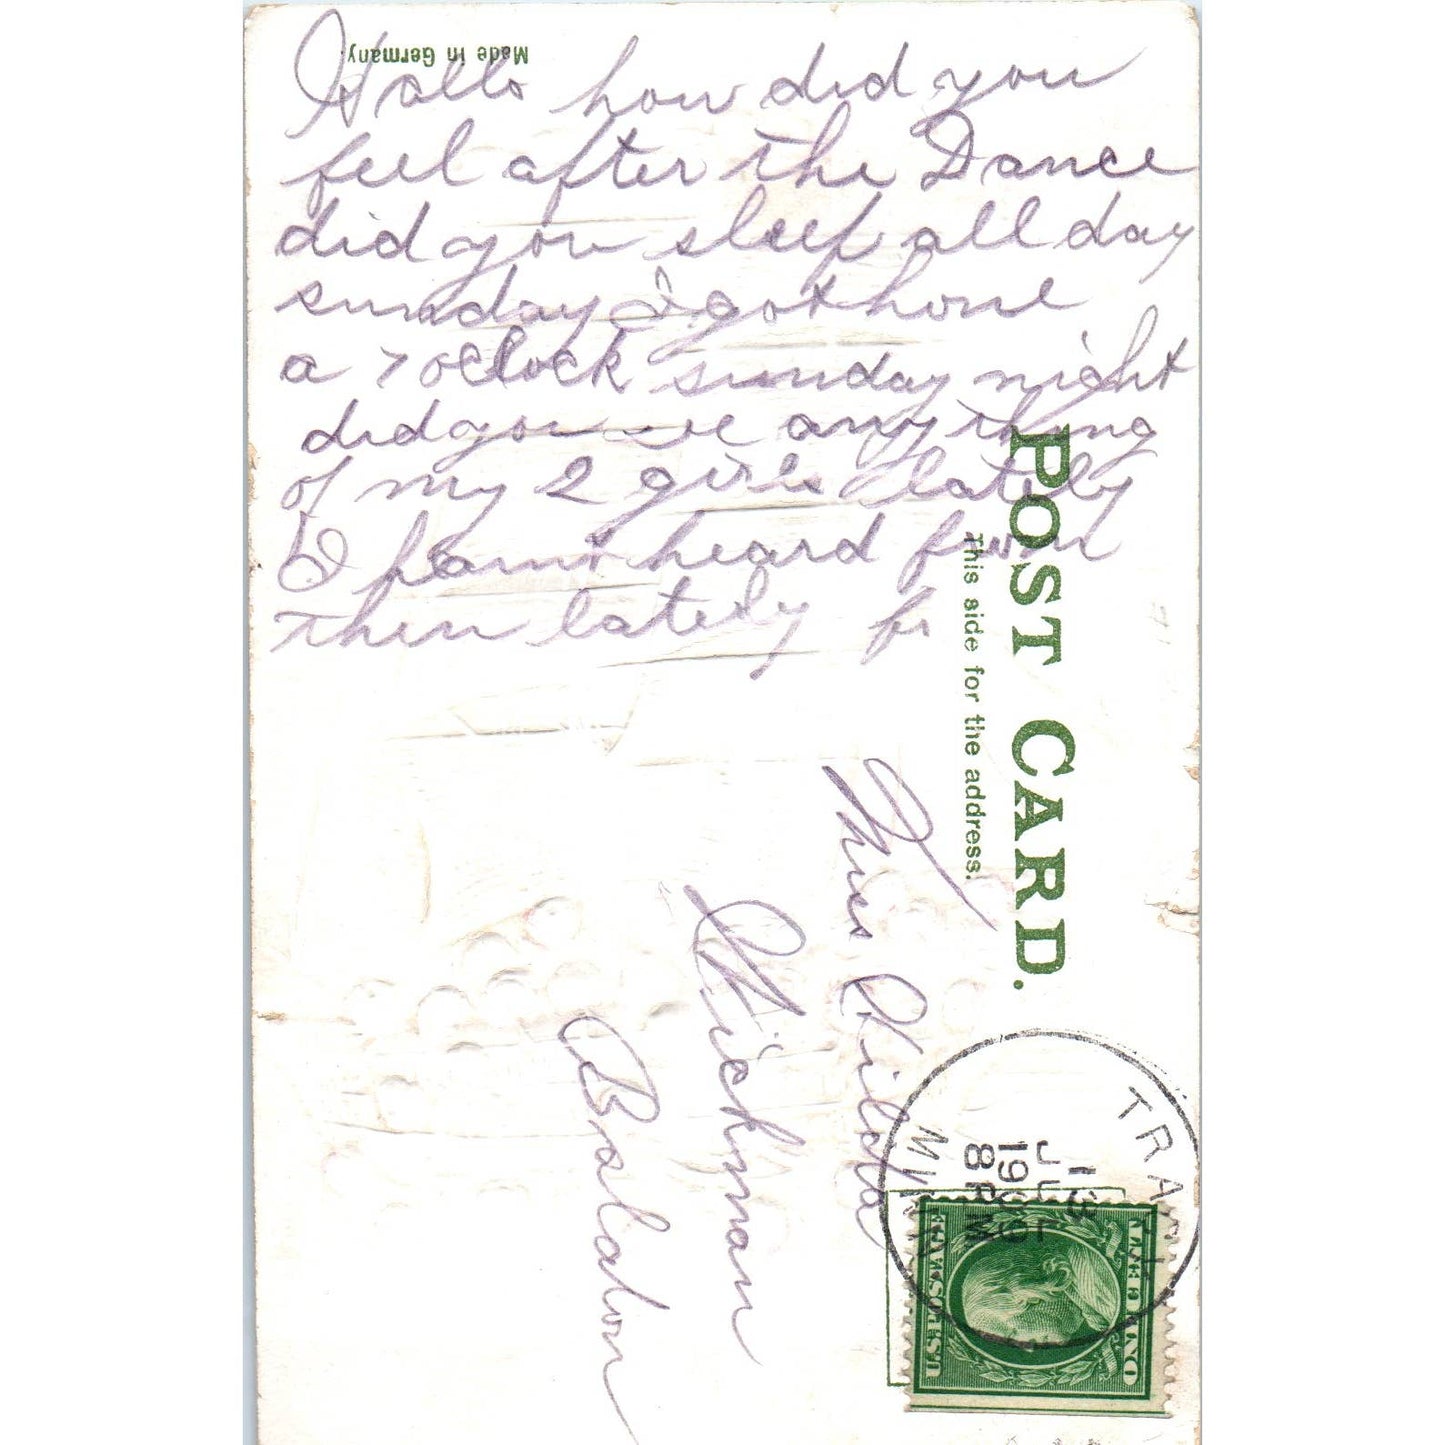 Made in Germany.
Hallo how did you
feel after the Dance
did you sleep all day
sunday I got home
a 7 oclock sunday night
did you see any thing
of my 2 girls lately
I haint heard from
then lately fr
POST CARD.
This side for the address.
Miss Hilda
Balaton
TRA
MINN
13
JUL
1909
8 PM
U.S. POSTAGE
ONE CENT